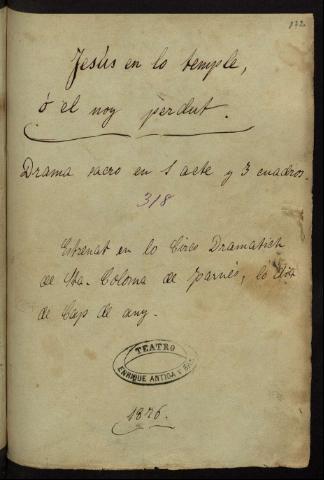 172
Jesús en lo temple,
ó el noy perdut.
Drama sacro en 1 acte y 3 cuadros.
318
Estrenat en lo Circo Dramátich
de Sta. Coloma de Farnés, lo dia
de Cap de any.
TEATRO
ENRIQUE ANTIGA Y
1876.